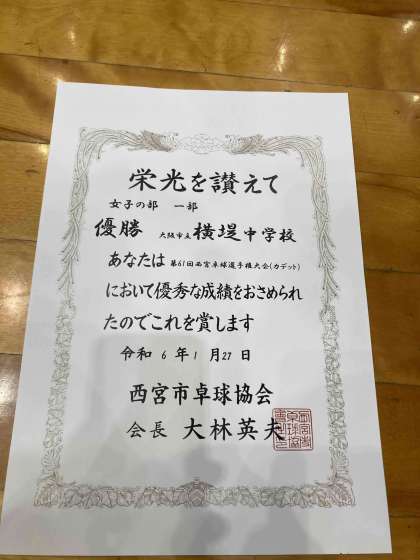 栄光を讃えて
女子の部 一部
優勝 大阪市立 横堤中学校
あなたは 第61回西宮卓球選手権大会(カデット)
において優秀な成績をおさめられ
たのでこれを賞します
令和 6 年 1 月 27 日
西宮市卓球協会
会長 大林英夫